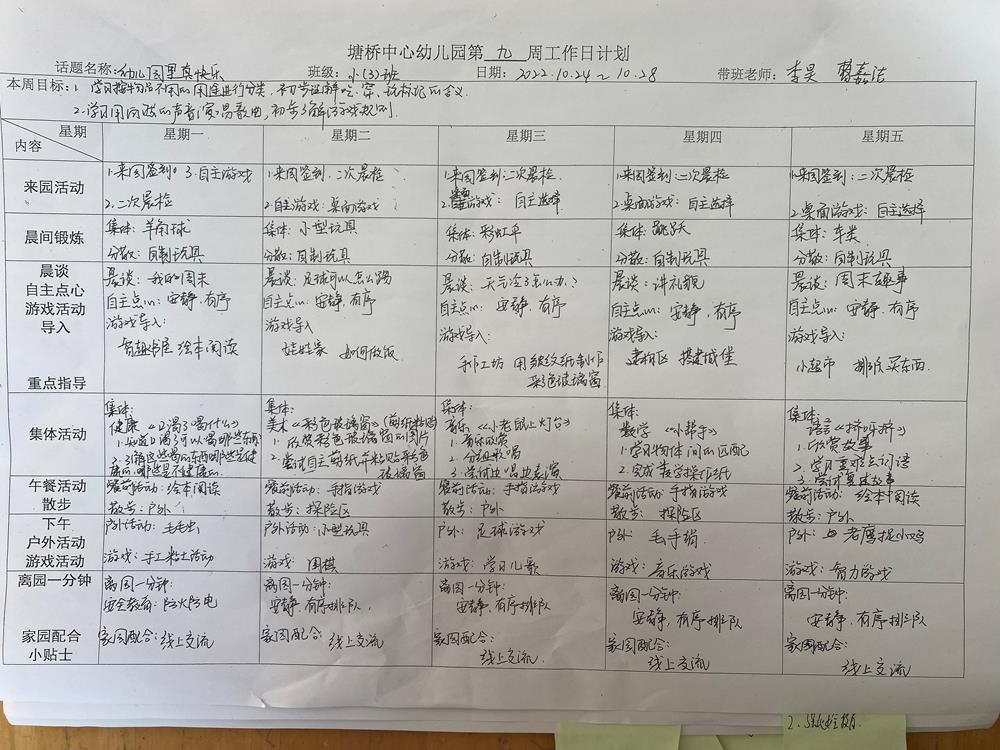 塘桥中心幼儿园第 九 周工作日计划
话题名称:幼儿园里真快乐 班级: 小(3)班 日期: 2022.10.24～10.28 带班老师: 李昊
本周目标: 1 学习按物品不同的用途进行分类,初步理解吃、穿、玩标记的含义
2.学习用问鼓的声音演唱歌曲,初步了解游戏规则.
星期 星期一 星期二 星期三 星期四 星期五
内容
来园活动
1.来园签到。3.自主游戏
2.二次晨检
1.来园签到.二次晨检
2.自主游戏:桌面游戏
1.来园签到:二次晨检
2.游戏: 自主选择
1.来园签到:二次晨检
2.桌面游戏: 自主选择
1.来园签到:二次晨检
2.桌面游戏:自主选择
晨间锻炼
集体:羊角球
分散:自制玩具
集体:小型玩具
分散:自制玩具
集体:彩虹伞
分散:自制玩具
集体:跳跃
分散:自制玩具
集体:车类
分散:自制玩具
晨谈
自主点心
游戏活动
导入
重点指导
晨谈:我的周末
自主点心:安静.有序
游戏导入:
绘本阅读
晨谈:足球可以怎么踢
自主点心:安静.有序
游戏导入
娃娃家 如何做饭
晨谈:天气冷了怎么办?
自主点心: 安静.有序
游戏导入:
手工坊 用皱纹纸制作
彩色玻璃窗
晨谈:讲礼貌
自主点心: 安静.有序
游戏导入:
建构区 搭建城堡
晨谈:周末趣事
自主点心: 安静.有序
游戏导入:
小超市 排队买东西.
集体活动
集体:
健康《口渴了喝什么》
1.知道口渴了可以喝哪些东西
集体:
美术《彩色玻璃窗》(剪纸粘贴)
1.欣赏彩色玻璃窗的图片
2.尝试自主剪纸并粘贴彩色
玻璃窗
集体:
音乐《小老鼠上灯台》
1.音乐欣赏
2.分组歌唱
3.尝试边唱边表演
集体:
数学《小帮手》
1.学习物体间的匹配
2.完成数学操作纸
集体:
语言《挤呀挤》
1.欣赏故事
2.学习重难点词语
3.尝试复述故事
午餐活动
散步
餐前活动:绘本阅读
散步:户外
餐前活动:手指游戏
散步:探险区
餐前活动:手指游戏
散步:户外
餐前活动:手指游戏
散步:探险区
餐前活动: 绘本阅读
散步:户外
下午
户外活动
游戏活动
户外活动:毛毛虫
游戏:手工粘土活动
户外活动:小型玩具
游戏: 围棋
户外: 足球游戏
游戏: 学习儿歌
户外:
游戏:音乐游戏
户外: 老鹰捉小鸡
游戏: 智力游戏
离园一分钟
家园配合
小贴士
离园一分钟:
安全教育:防火防电
家园配合:线上交流
离园一分钟:
安静,有序排队.
家园配合: 线上交流
离园一分钟:
安静,有序排队
家园配合:
线上交流.
离园一分钟:
安静,有序排队
家园配合:
线上交流
离园一分钟:
安静,有序排队
家园配合:
线上交流